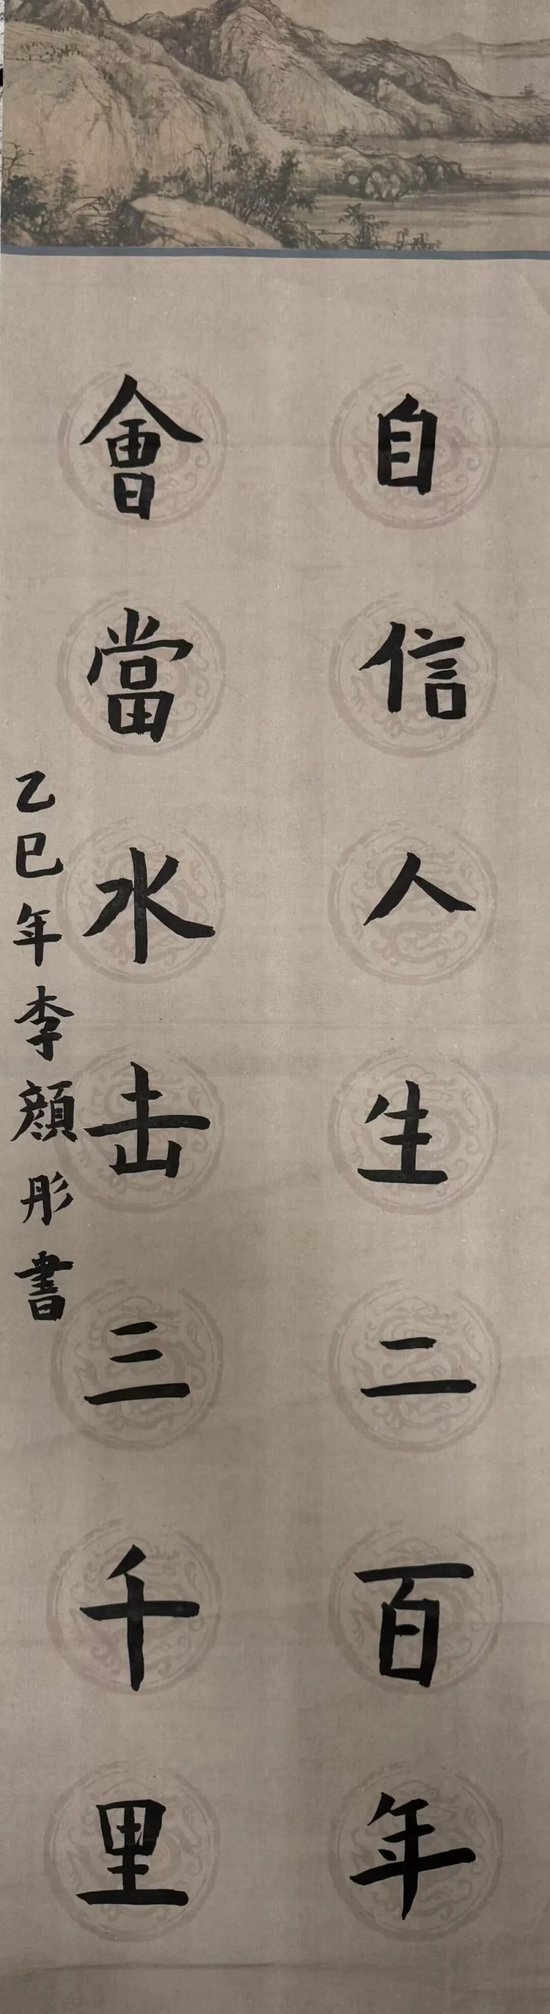 自信人生二百年
會當水击三千里
乙巳年李顔彤書